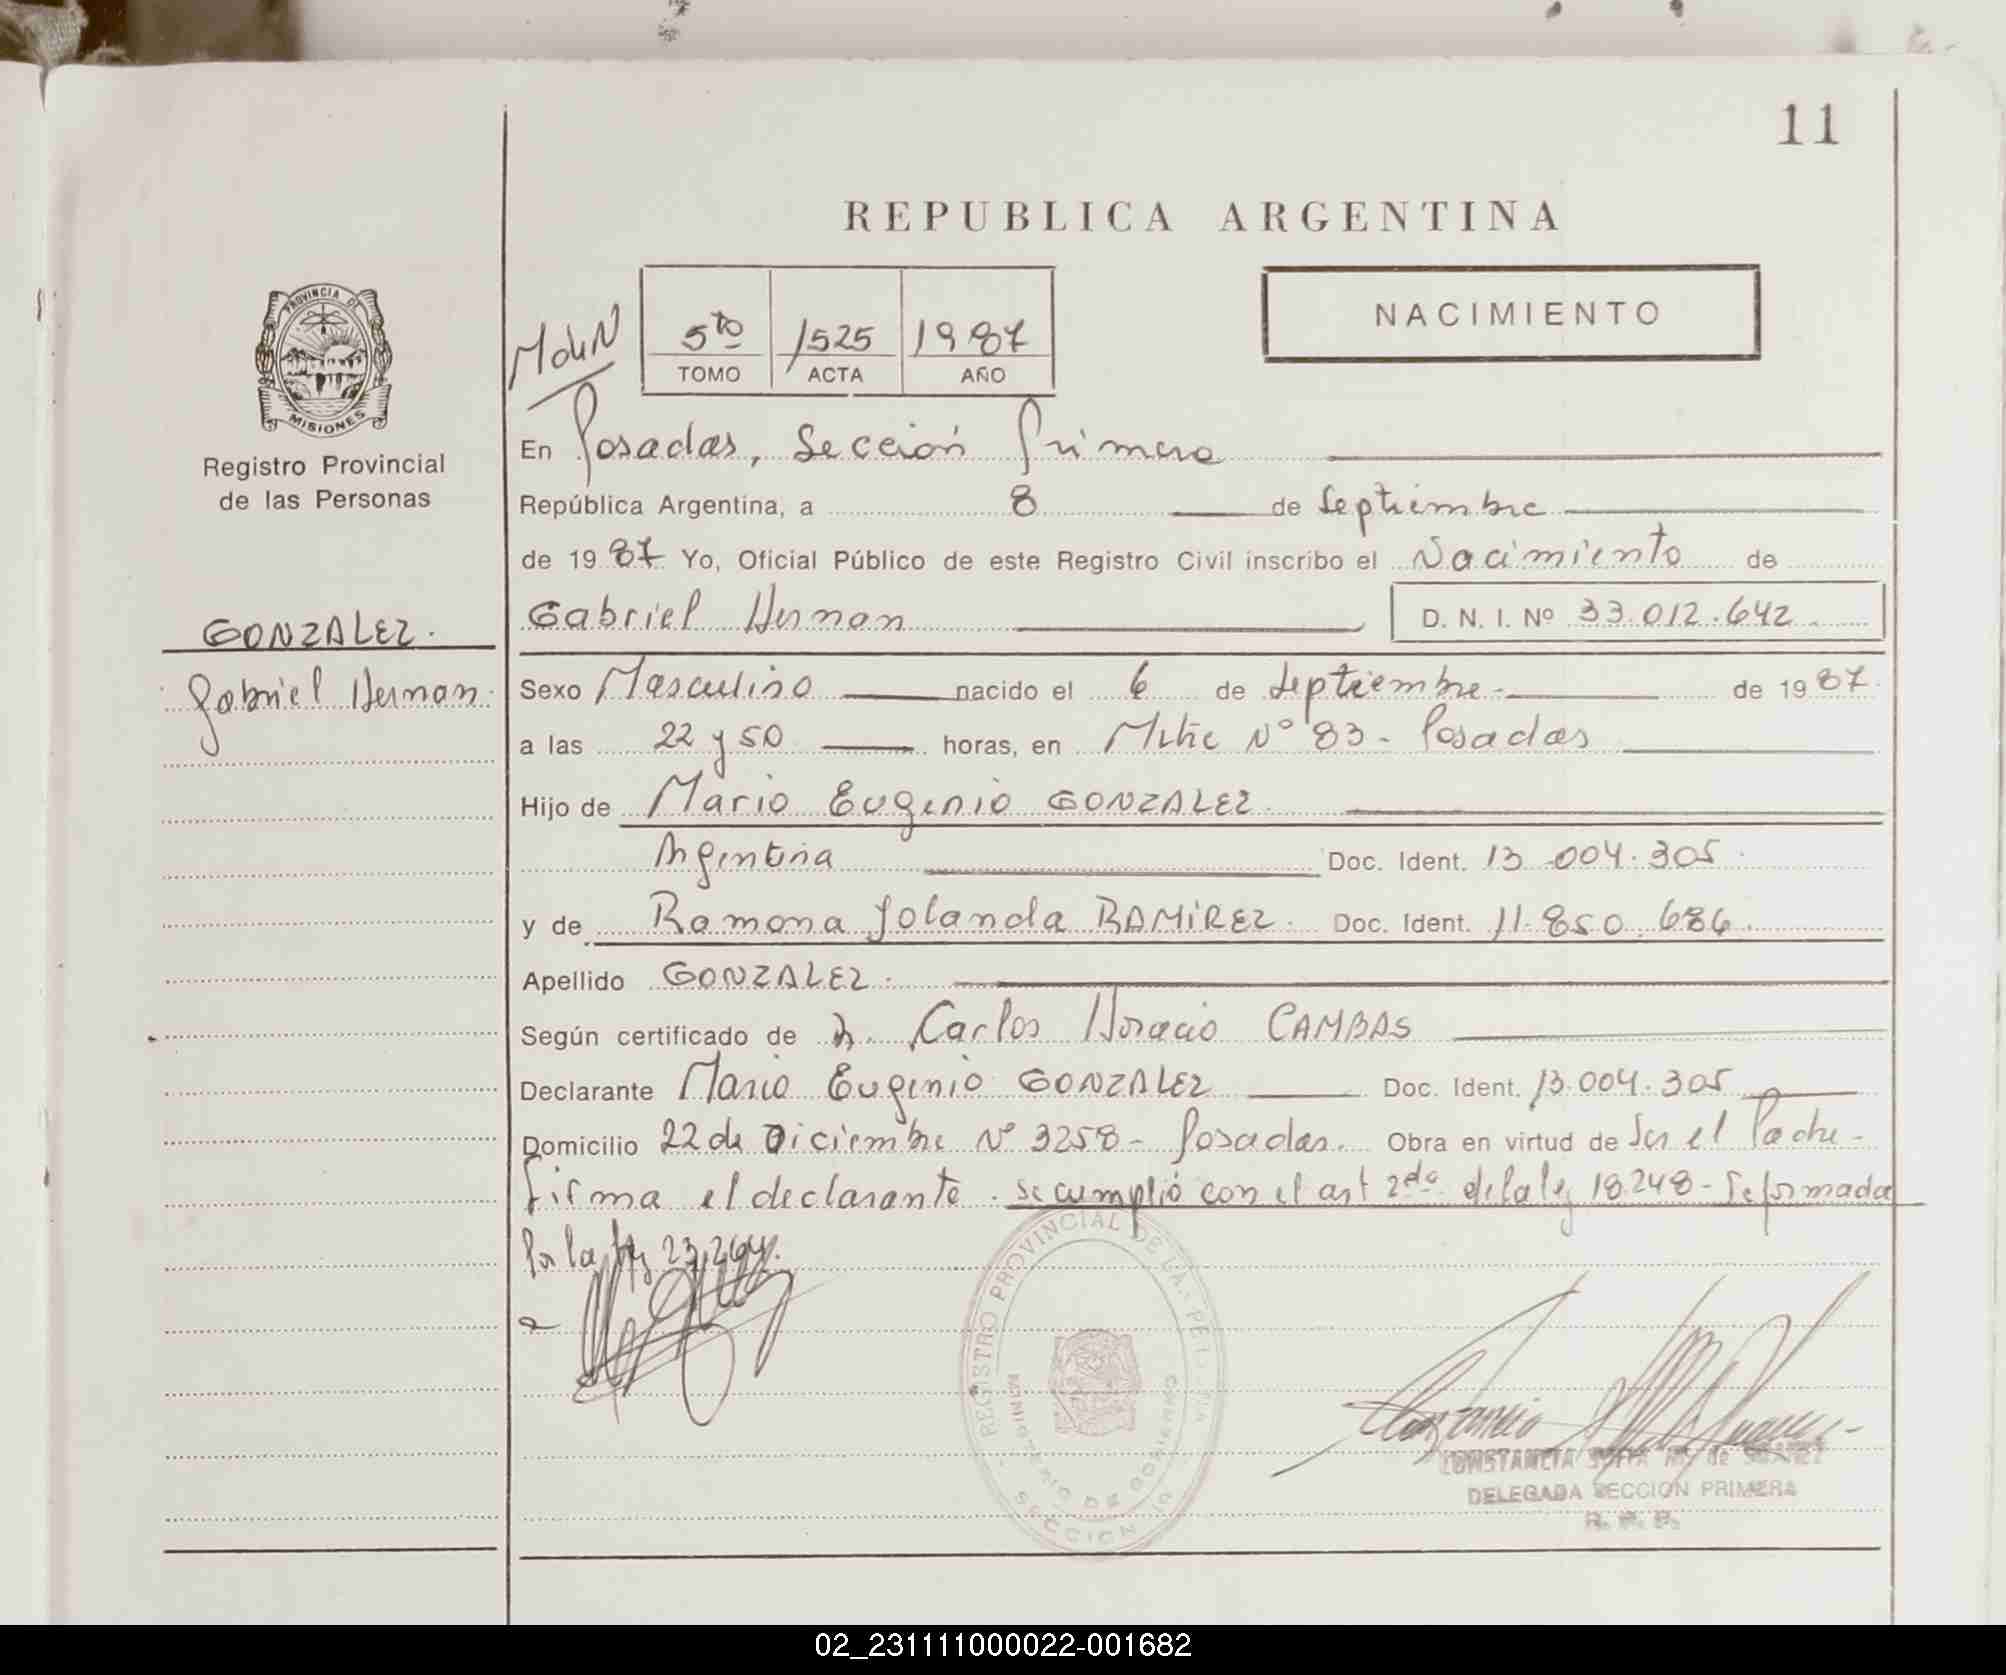 11
REPUBLICA ARGENTINA
NACIMIENTO
5to 1525 1987
TOMO ACTA AÑO
PROVINCIA DE
MISIONES
Registro Provincial
de las Personas
GONZALEZ.
Gabriel Hernan.
En Posadas, Sección Primera
República Argentina, a 8 de Septiembre
de 1987 Yo, Oficial Público de este Registro Civil inscribo el Nacimiento de
Gabriel Hernan D. N. I. Nº 33.012.642
Sexo Masculino nacido el 6 de Septiembre de 1987
a las 22 y 50 horas, en Mitre Nº 83 - Posadas
Hijo de Mario Eugenio GONZALEZ
Argentina Doc. Ident. 13.004.305
y de Ramona Yolanda RAMIREZ. Doc. Ident. 11.850.686.
Apellido GONZALEZ.
Según certificado de Dr. Carlos Horacio CAMBAS
Declarante Mario Eugenio GONZALEZ Doc. Ident. 13.004.305
Domicilio 22 de Diciembre Nº 3258 - Posadas. Obra en virtud de Ser el Padre -
firma el declarante. se cumplió con el art 2do de la ley 18.248 - reformada
Por la ley 23.264.
REGISTRO PROVINCIAL DE LAS PER
MINISTERIO DE GOBIERNO
SECCION
CONSTANCIA de SUAREZ
DELEGADA SECCION PRIMERA
R. P. P.
02_231111000022-001682